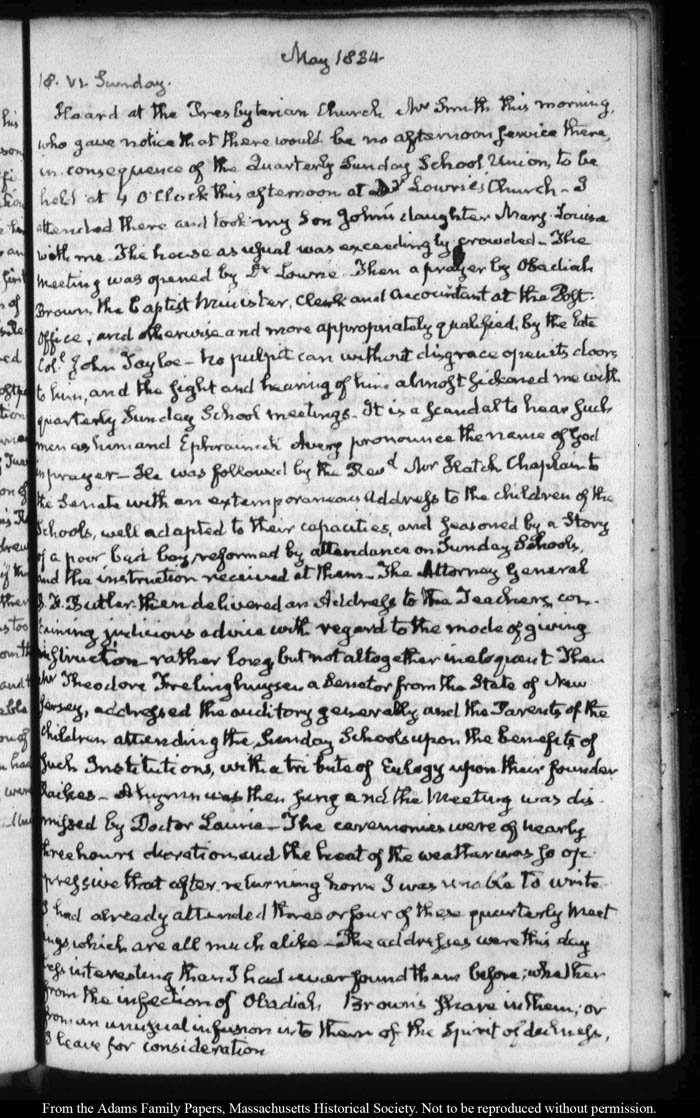 May 1834
18. VI. Sunday.
Heard at the Presbyterian Church Mr Smith this morning,
who gave notice that there would be no afternoon service there,
in consequence of the Quarterly Sunday School Union, to be
held at 4 O'Clock this afternoon at Dr Lowrie's Church — I
attended there and took my Son John's daughter Mary Louisa
with me. The house as usual was exceedingly crowded — The
meeting was opened by Dr Lowrie. Then a prayer by Obadiah
Brown, the Baptist Minister, Clerk and Accountant at the Post-
Office, and otherwise and more appropriately qualified, by the late
Col.l John Tayloe — No pulpit can without disgrace open its doors
to him, and the sight and hearing of him almost sickened me with
quarterly Sunday School meetings — It is a scandal to hear such
men as him and Ephraim K Avery pronounce the name of God
in prayer — He was followed by the Revd Mr Hatch Chaplain to
the Senate with an extemporaneous Address to the children of the
Schools, well adapted to their capacities, and seasoned by a Story
of a poor bad boy, reformed by attendance on Sunday Schools,
and the instruction received at them — The Attorney General
B. F. Butler then delivered an Address to the Teachers, con-
taining judicious advice with regard to the mode of giving
instruction — rather long but not altogether ineloquent Then
Mr Theodore Frelinghuysen a Senator from the State of New
Jersey, addressed the auditory generally and the Parents of the
children attending the Sunday Schools upon the benefits of
such Institutions, with a tribute of Eulogy upon their founder
Raikes — A hymn was then sung and the Meeting was dis-
missed by Doctor Laurie — The ceremonies were of nearly
three hours duration and the heat of the weather was so op-
pressive that after returning home I was unable to write
I had already attended three or four of these quarterly Meet
ings which are all much alike — The addresses were this day
less interesting than I had ever found them before; whether
from the infection of Obadiah Brown's share in them, or
from an unusual infusion into them of the Spirit of dulness,
I leave for consideration
From the Adams Family Papers, Massachusetts Historical Society. Not to be reproduced without permission.